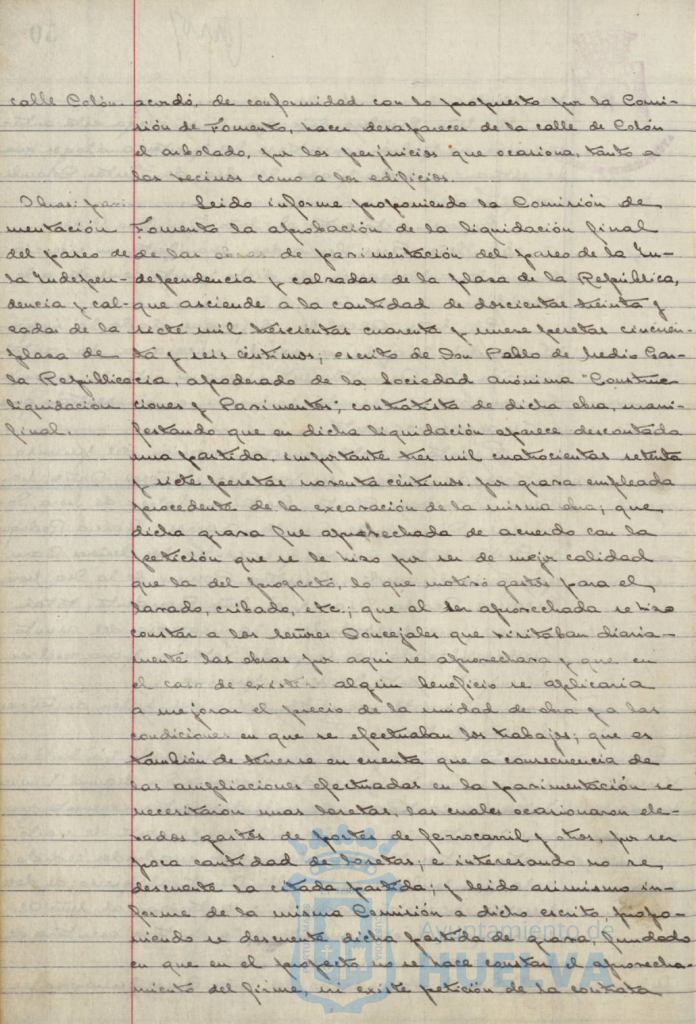 calle Colón.
acordó, de conformidad con lo propuesto por la Comi-
sión de Fomento, hacer desaparecer de la calle de Colón
el arbolado, por los perjuicios que ocasiona, tanto a
los vecinos como a los edificios.
Obras: pavi-
mentación
del paseo de
la Indepen-
dencia y cal-
zadas de la
plaza de
la República
liquidación
final.
Leido informe proponiendo la Comisión de
Fomento la aprobación de la liquidación final
de las obras de pavimentación del paseo de la In-
dependencia y calzadas de la plaza de la República,
que asciende a la cantidad de doscientas treinta y
siete mil trescientas cuarenta y nueve pesetas cincuen-
ta y seis céntimos; escrito de Don Pablo de Medio Gar-
cia, apoderado de la Sociedad anónima "Construc-
ciones y Pavimentos", contratista de dicha obra, mani-
festando que en dicha liquidación aparece descontada
una partida, importante tres mil cuatrocientas setenta
y siete pesetas noventa céntimos, por grava empleada
procedente de la excavación de la misma obra; que
dicha grava fue aprovechada de acuerdo con la
petición que se le hizo por ser de mejor calidad
que la del proyecto, lo que motivó gastos para el
lavado, cribado, etc.; que al ser aprovechada se hizo
constar a los Señores Concejales que visitaban diaria-
mente las obras por aqui se aprovechara y que en
el caso de existir algún beneficio se aplicaria
a mejorar el precio de la unidad de obra y a las
condiciones en que se efectuaban los trabajos; que es
también de tenerse en cuenta que a consecuencia de
las ampliaciones efectuadas en la pavimentación se
necesitaron unas losetas, las cuales ocasionaron ele-
vados gastos de portes de ferrocarril y otros, por ser
poca cantidad de losetas; e interesando no se
descuente la citada partida; y leido asimismo in-
forme de la misma Comisión a dicho escrito, propo-
niendo se descuente dicha partida de grava, fundado
en que en el proyecto no se hace constar el aprovecha-
miento del firme, ni existe petición de la contrata
Ayuntamiento de
HUELVA